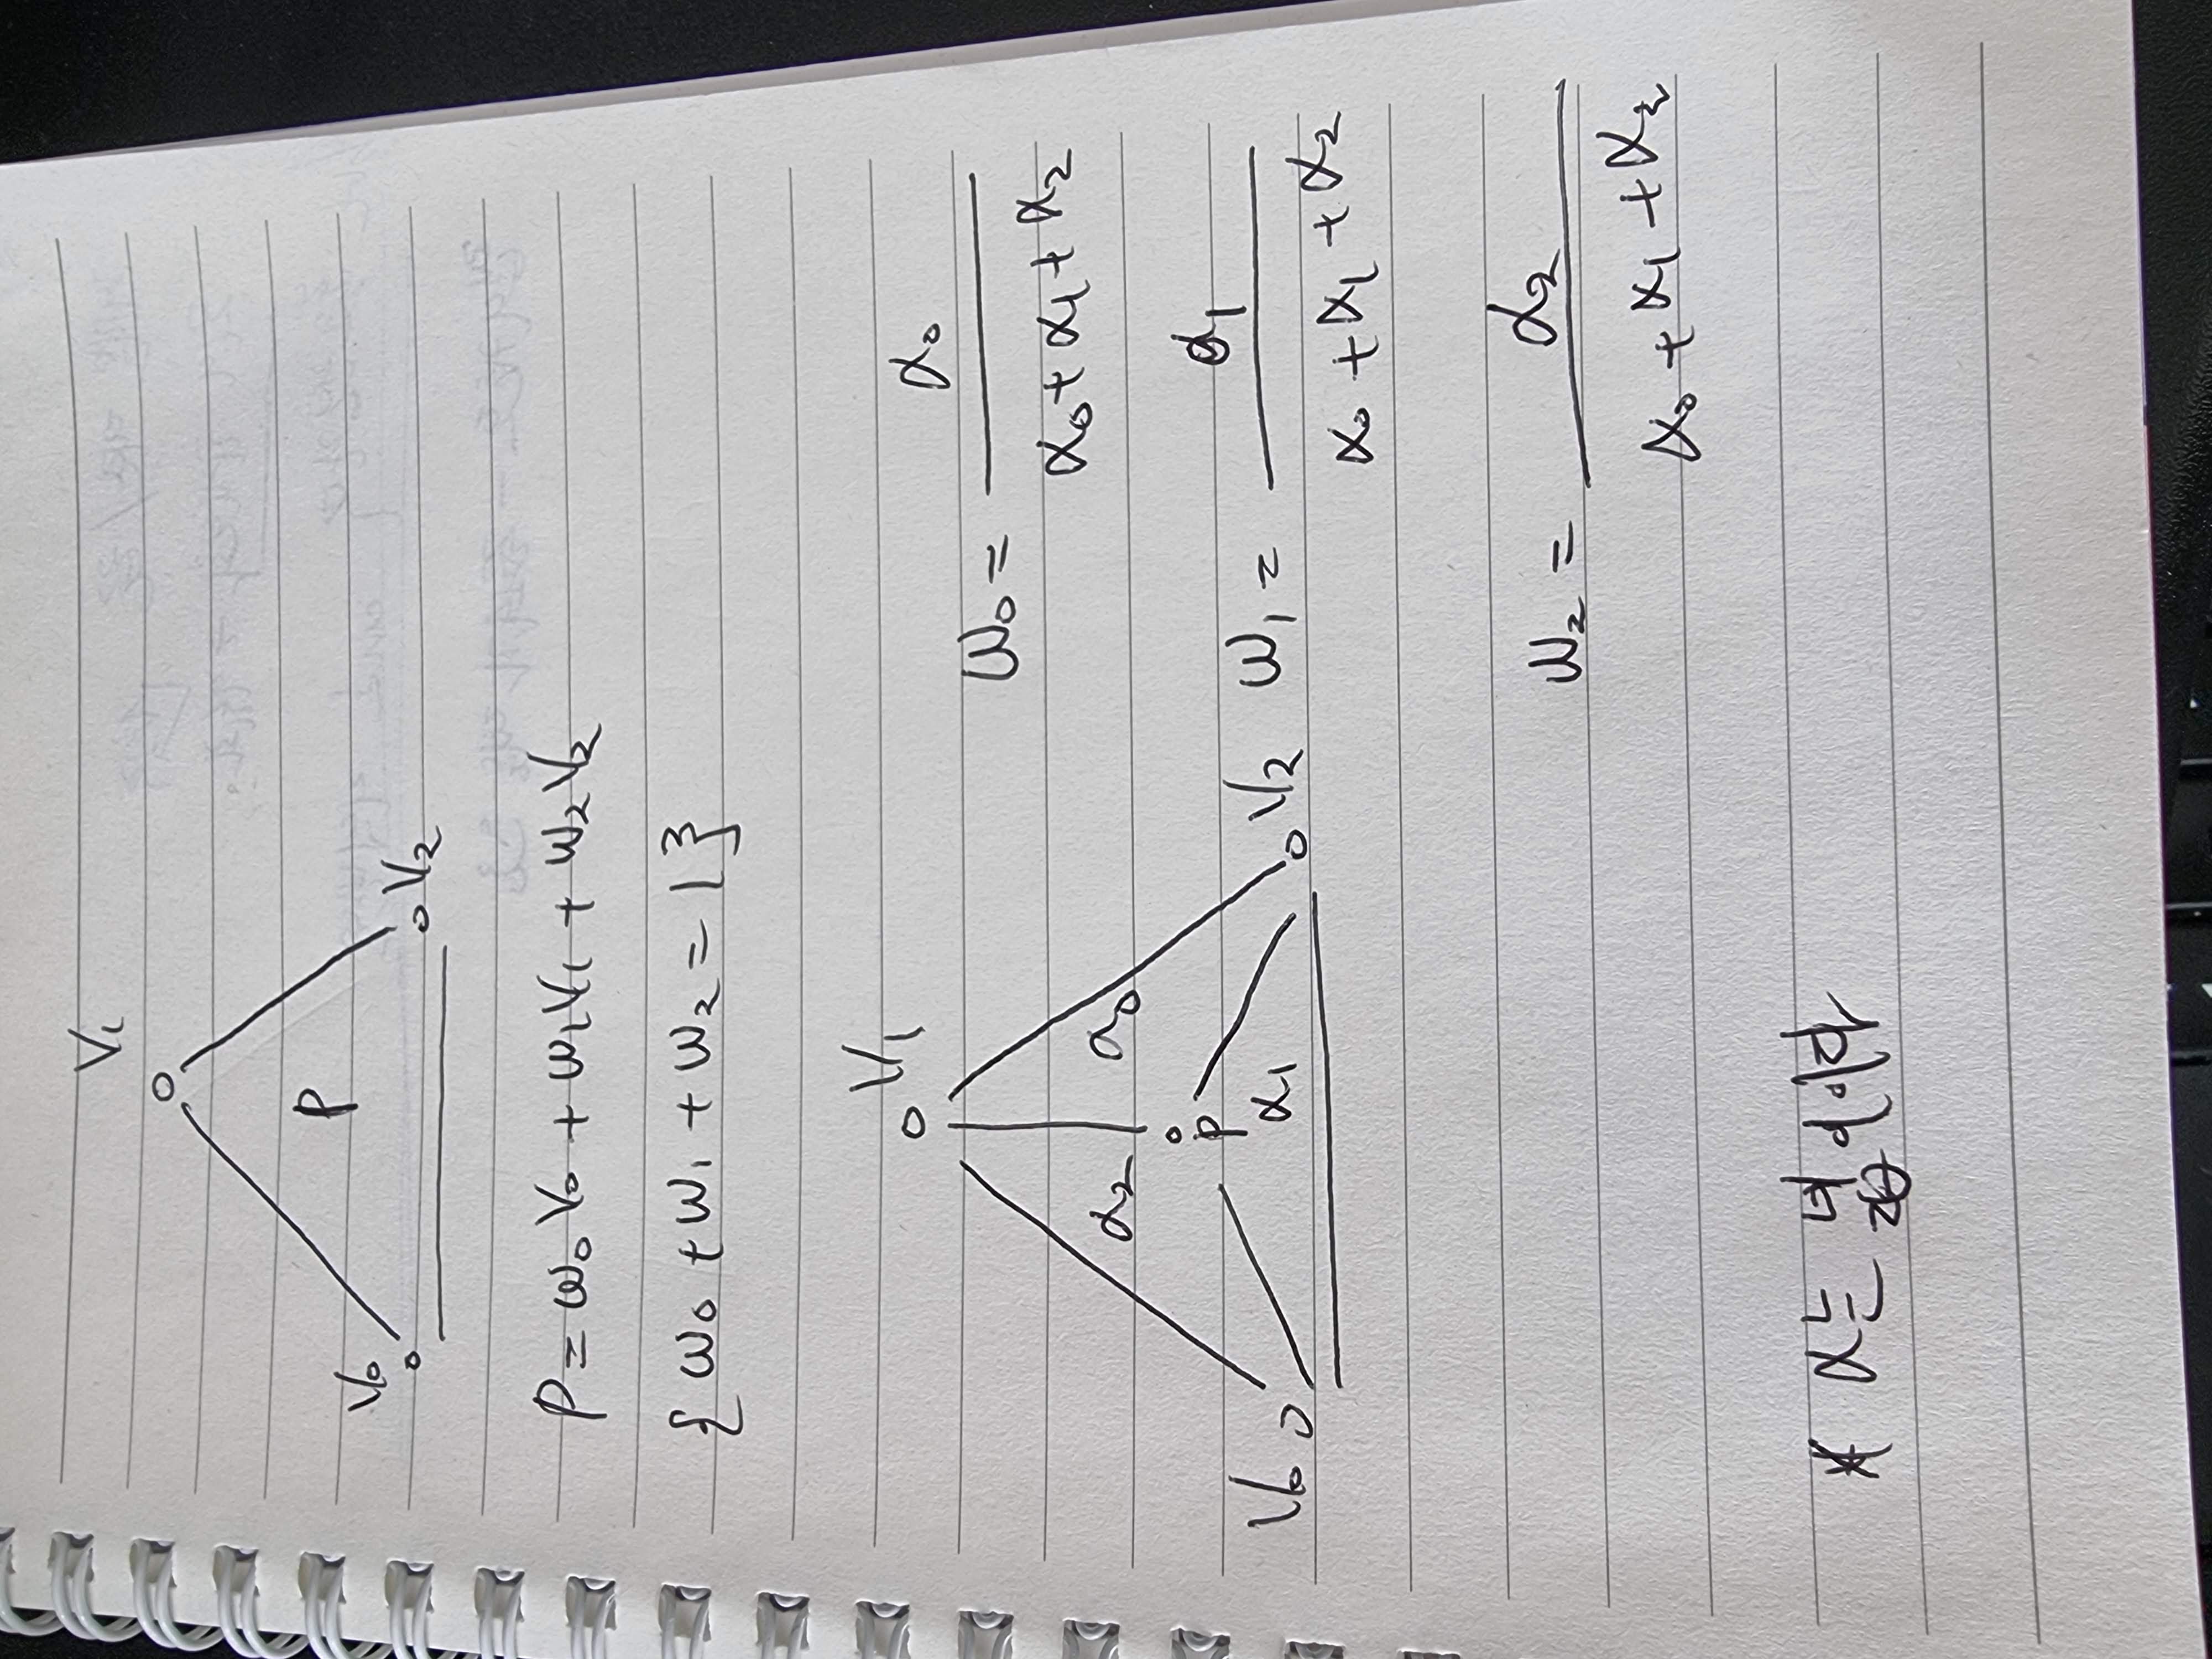 V₁
P
V₀
V₂
P = w₀V₀ + w₁V₁ + w₂V₂
{ w₀ + w₁ + w₂ = 1 }
V₁
α₂ α₀
P
V₀ α₁ V₂
w₀ = α₀ / (α₀ + α₁ + α₂)
w₁ = α₁ / (α₀ + α₁ + α₂)
w₂ = α₂ / (α₀ + α₁ + α₂)
* α는 넓이이다